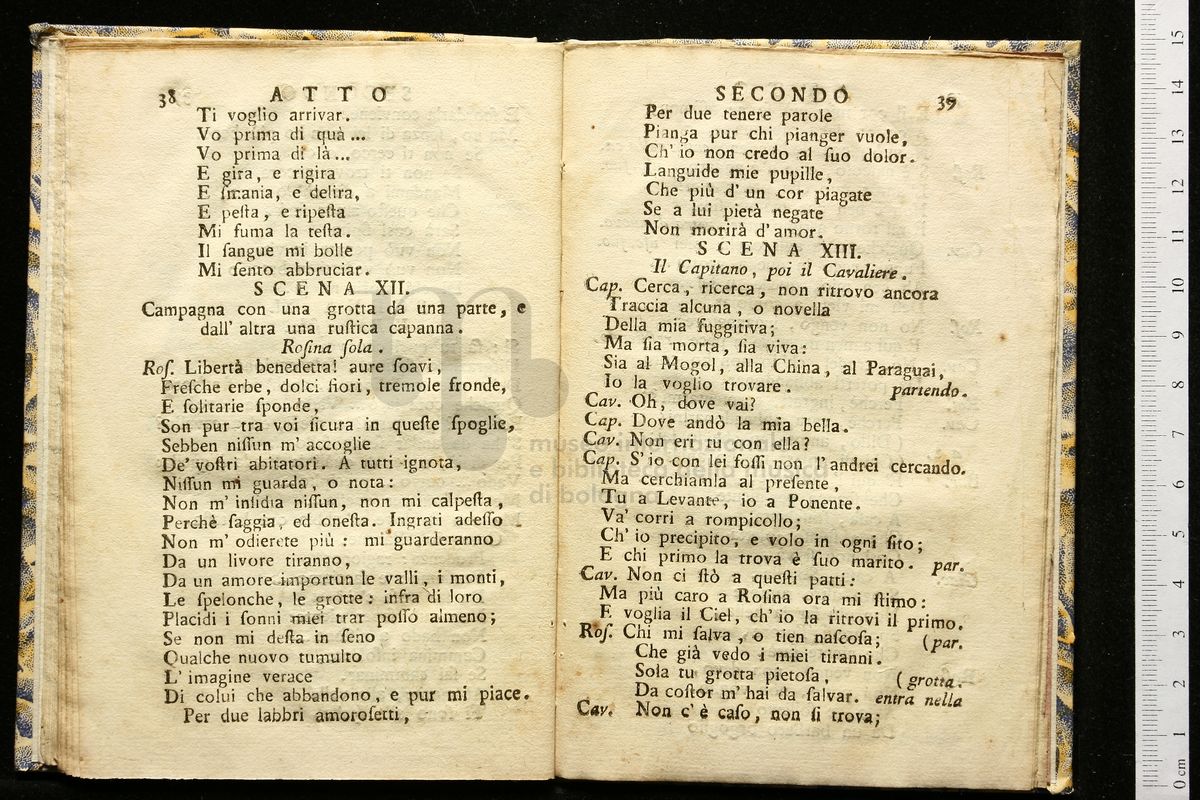 38 ATTO
Ti voglio arrivar.
Vo prima di quà ...
Vo prima di là ...
E gira, e rigira
E ſmania, e delira,
E peſta, e ripeſta
Mi fuma la teſta.
Il ſangue mi bolle
Mi ſento abbruciar.
SCENA XII.
Campagna con una grotta da una parte, e
dall' altra una ruſtica capanna.
Roſina ſola.
Roſ. Libertà benedetta! aure ſoavi,
Freſche erbe, dolci fiori, tremole fronde,
E ſolitarie ſponde,
Son pur tra voi ſicura in queſte ſpoglie,
Sebben niſſun m' accoglie
De' voſtri abitatori. A tutti ignota,
Niſſun mi guarda, o nota:
Non m' inſidia niſſun, non mi calpeſta,
Perchè ſaggia, ed oneſta. Ingrati adeſſo
Non m' odierete più : mi guarderanno
Da un livore tiranno,
Da un amore importun le valli, i monti,
Le ſpelonche, le grotte: infra di loro
Placidi i ſonni miei trar poſſo almeno;
Se non mi deſta in ſeno
Qualche nuovo tumulto
L' imagine verace
Di colui che abbandono, e pur mi piace.
Per due labbri amoroſetti,
SECONDO 39
Per due tenere parole
Pianga pur chi pianger vuole,
Ch' io non credo al ſuo dolor.
Languide mie pupille,
Che più d' un cor piagate
Se a lui pietà negate
Non morirà d' amor.
SCENA XIII.
Il Capitano, poi il Cavaliere.
Cap. Cerca, ricerca, non ritrovo ancora
Traccia alcuna, o novella
Della mia fuggitiva;
Ma ſia morta, ſia viva:
Sia al Mogol, alla China, al Paraguai,
Io la voglio trovare. partendo.
Cav. Oh, dove vai?
Cap. Dove andò la mia bella.
Cav. Non eri tu con ella?
Cap. S' io con lei foſſi non l' andrei cercando.
Ma cerchiamla al preſente,
Tu a Levante, io a Ponente.
Va' corri a rompicollo;
Ch' io precipito, e volo in ogni ſito;
E chi primo la trova è ſuo marito. par.
Cav. Non ci ſtò a queſti patti:
Ma più caro a Roſina ora mi ſtimo:
E voglia il Ciel, ch' io la ritrovi il primo.
Roſ. Chi mi ſalva, o tien naſcoſa; (par.
Che già vedo i miei tiranni.
Sola tu grotta pietoſa, (grotta.
Da coſtor m' hai da ſalvar. entra nella
Cav. Non c' è caſo, non ſi trova;
0 cm 1 2 3 4 5 6 7 8 9 10 11 12 13 14 15